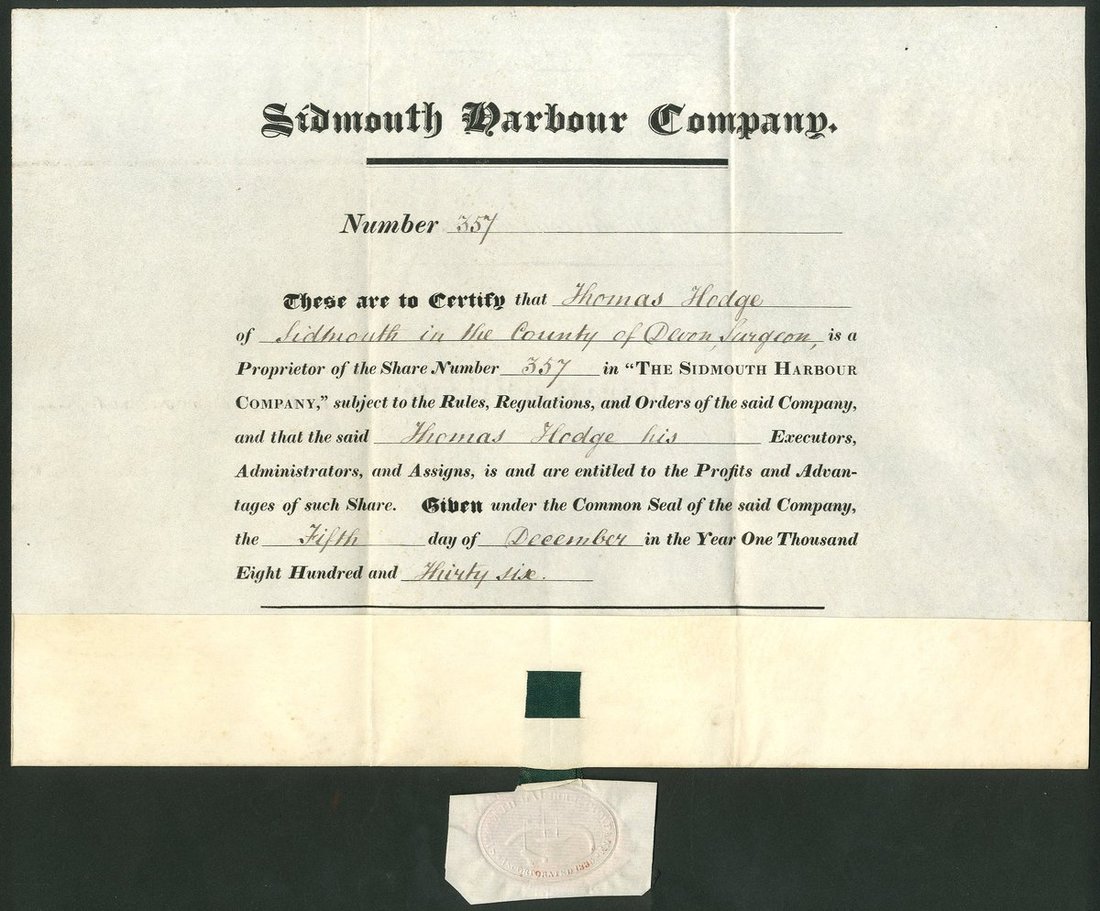 Sidmouth Harbour Company.
Number 357
These are to Certify that Thomas Hodge
of Sidmouth in the County of Devon, Surgeon, is a
Proprietor of the Share Number 357 in “THE SIDMOUTH HARBOUR
COMPANY,” subject to the Rules, Regulations, and Orders of the said Company,
and that the said Thomas Hodge his Executors,
Administrators, and Assigns, is and are entitled to the Profits and Advan-
tages of such Share. Given under the Common Seal of the said Company,
the Fifth day of December in the Year One Thousand
Eight Hundred and Thirty six.
INCORPORATED